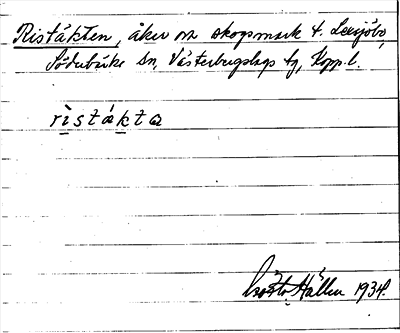 Ristäkten, åker o. skogsmark t. Leesjöbo,
Söderbärke sn, Västerbergslags tg, Kopp. l.
ristäkta
Gösta Hallén 1934.